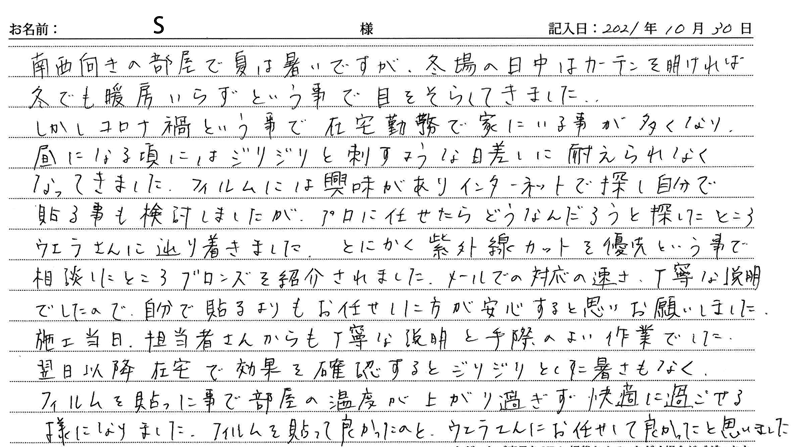 お名前： S 様 記入日：2021年10月30日
南西向きの部屋で夏は暑いですが、冬場の日中はカーテンを開ければ
冬でも暖房いらずという事で目をそらしてきました..
しかしコロナ禍という事で在宅勤務で家にいる事が多くなり、
昼になる頃にはジリジリと刺すような日差しに耐えられなく
なってきました。フィルムには興味がありインターネットで探し自分で
貼る事も検討しましたが、プロに任せたらどうなんだろうと探したところ
ウエラさんに辿り着きました。とにかく紫外線カットを優先という事で
相談したところブロンズを紹介されました。メールでの対応の速さ、丁寧な説明
でしたので、自分で貼るよりもお任せした方が安心すると思いお願いしました。
施工当日、担当者さんからも丁寧な説明と手際のよい作業でした。
翌日以降在宅で効果を確認するとジリジリとした暑さもなく、
フィルムを貼った事で部屋の温度が上がり過ぎず快適に過ごせる
様になりました。フィルムを貼って良かったのと、ウエラさんにお任せして良かったと思いました